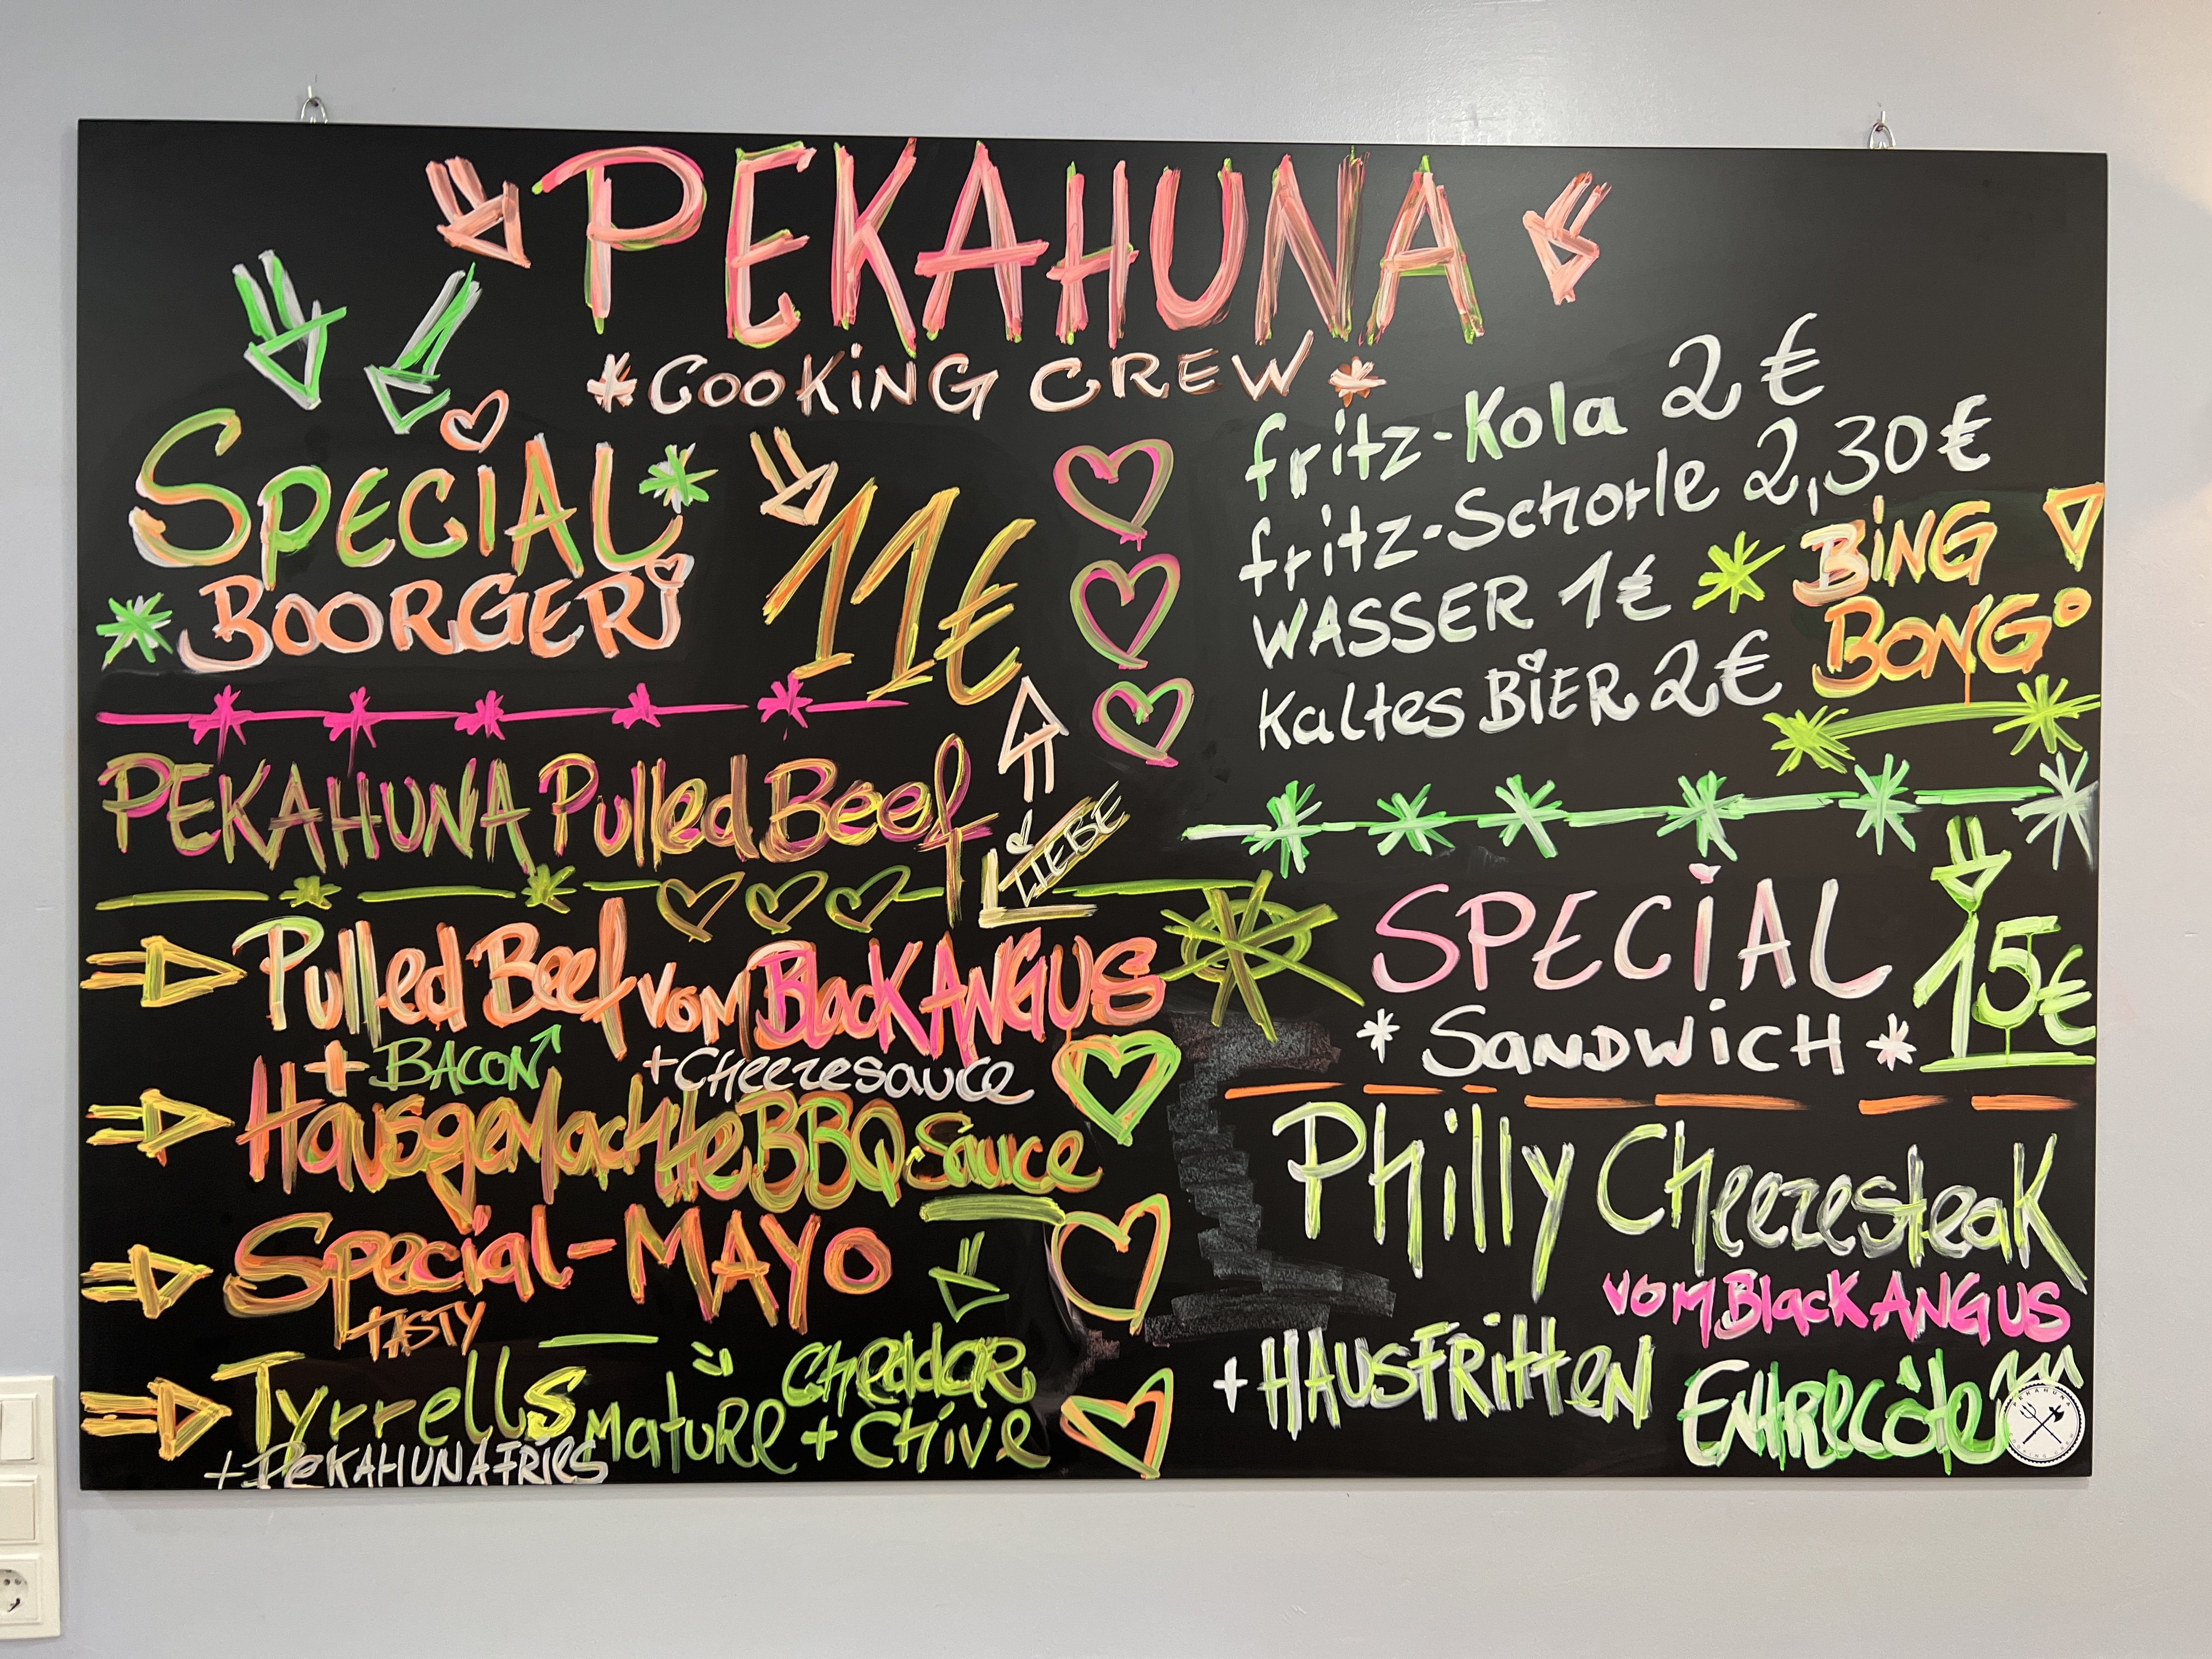 PEKAHUNA
*COOKING CREW*
SPECIAL
BOORGER
11€
PEKAHUNA Pulled Beef
LIEBE
Pulled Beef vom Black ANGUS
+ BACON + Cheezesauce
Hausgemachte BBQ Sauce
Special-MAYO
TASTY
Tyrrells mature Cheddar
+ Chive
+ PEKAHUNA FRIES
fritz-Kola 2€
fritz-Schorle 2,30€
WASSER 1€
Kaltes BIER 2€
BING
BONG
SPECIAL
*SANDWICH*
15€
Philly Cheezesteak
vom Black ANGUS
+ HAUSFRITTEN
ENTRECÔTE
PEKAHUNA